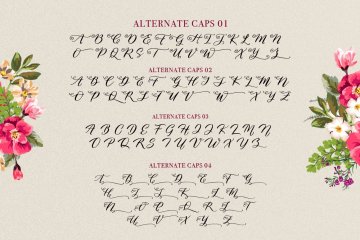 ALTERNATE CAPS 01
A B C D E F G H I J K L M N
O P Q R S T U V W X Y Z
ALTERNATE CAPS 02
A B C D E F G H I J K L M N
O P Q R S T U V W X Y Z
ALTERNATE CAPS 03
A B C D E F G H I J K L M N
O P Q R S T U V W X Y Z
ALTERNATE CAPS 04
A B C D E F G
H I J K L M
N O P Q R S T
U V W X Y Z